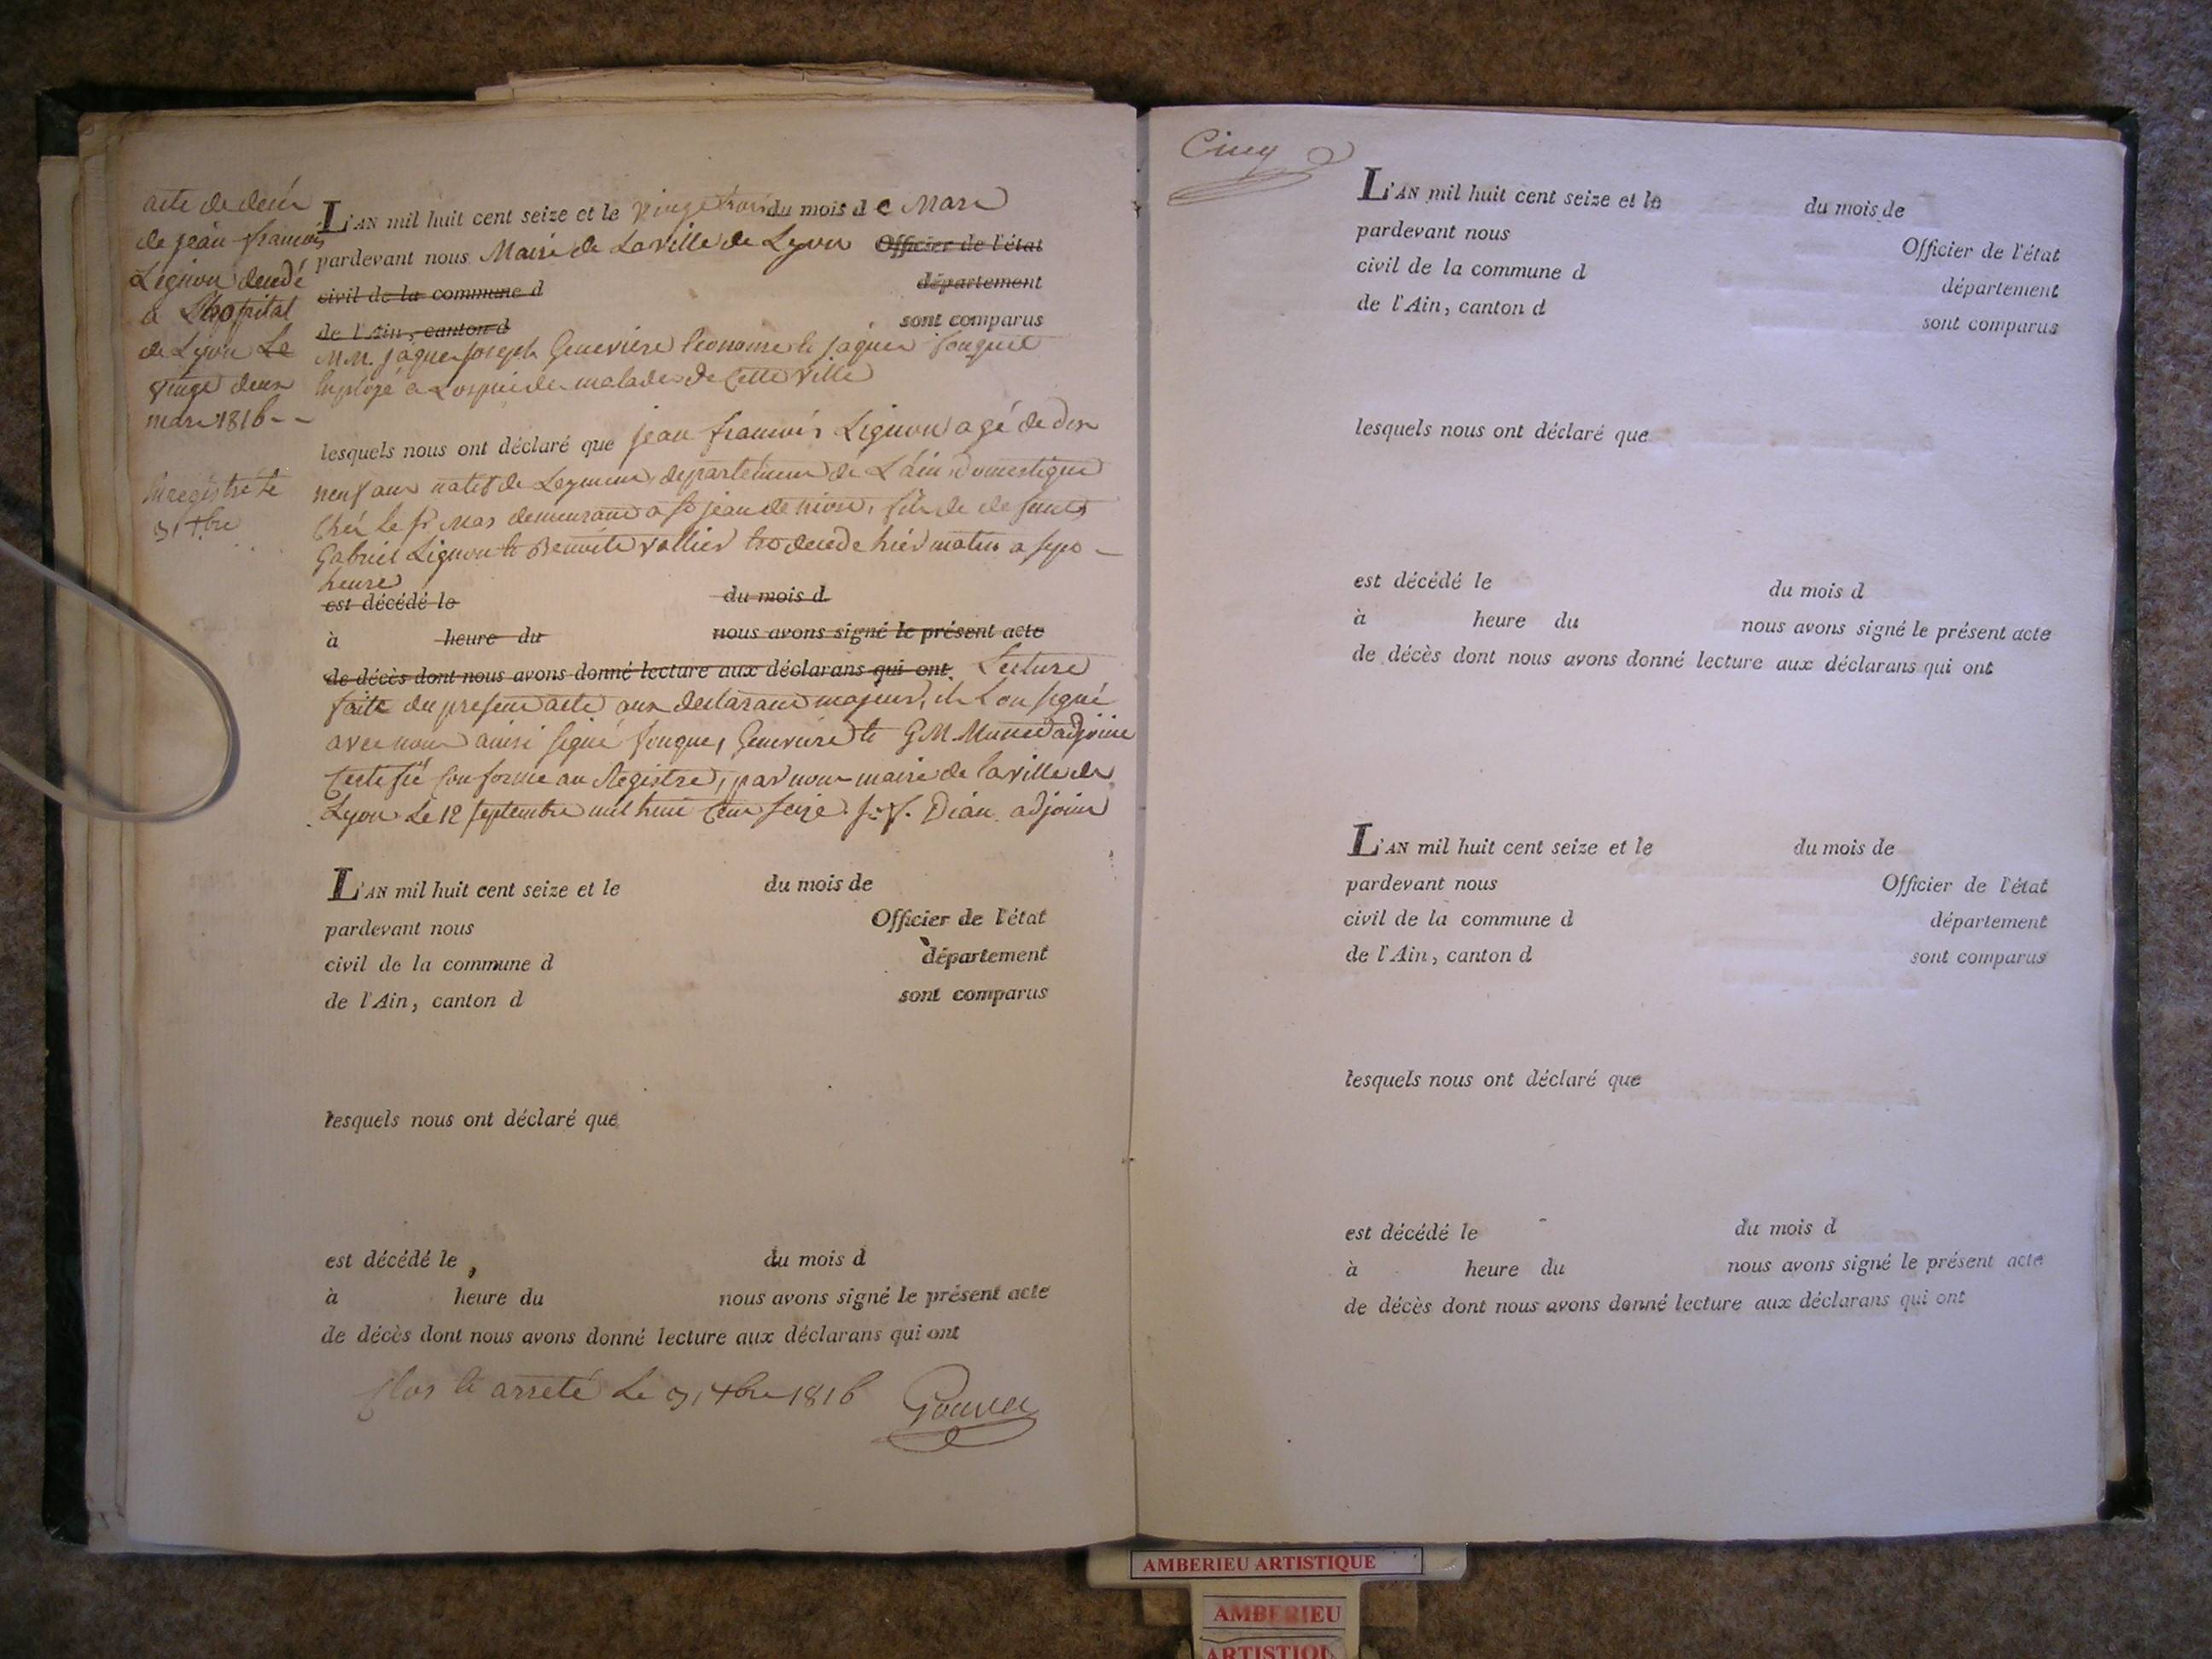 acte de décès
de jean francois
Lignon decedé
a L'hopital
de Lyon Le
vingt deux
mars 1816 - -
Enregistré le
31 xbre
L'AN mil huit cent seize et le vingt trois du mois de Mars
pardevant nous Maire de La ville de Lyon Officier de l'état
civil de la commune d département
de l'Ain, canton d sont comparus
MM. jaques joseph Genevière Econome et jaques fouquet
Employé a Lospice des malades de Cette ville
lesquels nous ont déclaré que jean francois Lignon agé de dix
neuf ans natif de Leyment, departement de L'ain Domestique
Chez Le sr Mas demeurant a st jean de niost, fils de defunts
Gabriel Lignon et Benoite vallier est decede hier matin a sept -
heures
est décédé le du mois d
à heure du nous avons signé le présent acte
de décès dont nous avons donné lecture aux déclarans qui ont. Lecture
faite du present acte aux declarans majeurs, ils L'on signé
avec nous ainsi signé fouquet, Genevière et G.M. adjoint
Certifié Conforme au Registre, par nous maire de la ville de
Lyon Le 12 septembre mil huit Cent seize. Dian adjoint
L'AN mil huit cent seize et le du mois de
pardevant nous Officier de l'état
civil de la commune d département
de l'Ain, canton d sont comparus
lesquels nous ont déclaré que
est décédé le du mois d
à heure du nous avons signé le présent acte
de décès dont nous avons donné lecture aux déclarans qui ont
Clos et arreté Le 31 xbre 1816
Cinq
L'AN mil huit cent seize et le du mois de
pardevant nous Officier de l'état
civil de la commune d département
de l'Ain, canton d sont comparus
lesquels nous ont déclaré que
est décédé le du mois d
à heure du nous avons signé le présent acte
de décès dont nous avons donné lecture aux déclarans qui ont
L'AN mil huit cent seize et le du mois de
pardevant nous Officier de l'état
civil de la commune d département
de l'Ain, canton d sont comparus
lesquels nous ont déclaré que
est décédé le du mois d
à heure du nous avons signé le présent acte
de décès dont nous avons donné lecture aux déclarans qui ont
AMBERIEU ARTISTIQUE
AMBERIEU